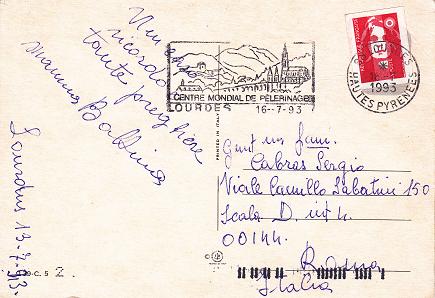 Un caro
ricordo
tante preghiere
mamma Balbina
Lourdes 13-7-93
CENTRE MONDIAL DE PÈLERINAGE
LOURDES 16-7-93
LOURDES
16-7
1993
HAUTES PYRENEES
PRINTED IN ITALY
Gent.ma fam.
Cabras Sergio
Viale Camillo Sabatini 150
Scala D. int 4.
00144.
Roma
Italia